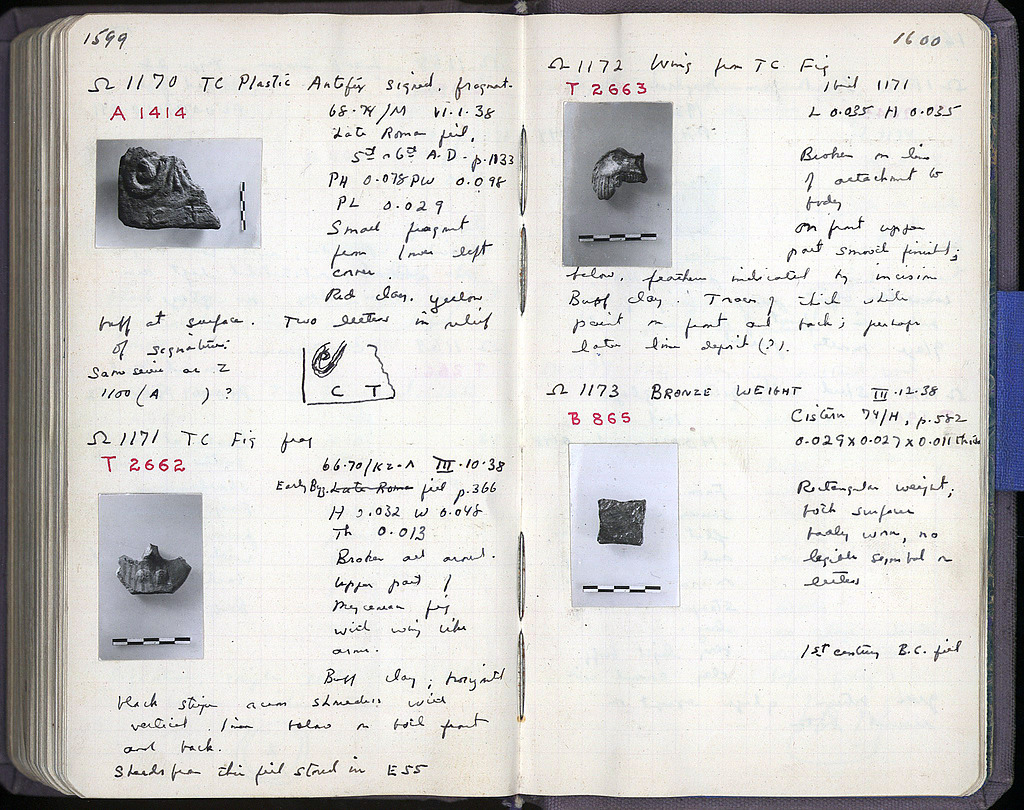 1599
Ω 1170 TC Plastic Antefix signed, fragmt.
A 1414
68-74/M VI.1.38
Late Roman fill,
5th or 6th A.D. p.1133
PH 0.078 PW 0.098
PL 0.029
Small fragmt
from lower left
corner.
Red clay, yellow
buff at surface. Two letters in relief
of signature:
Same series as Σ
1100 (A ) ?
C T
Ω 1171 TC Fig frag
T 2662
III.10.38
Early Byz. Late Roman fill p.366
H 0.032 W 0.048
Th 0.013
Broken all around.
Upper part of
Mycenean fig
with wing like
arms.
Buff clay; horizontal
black stripe across shoulders with
vertical lines below on both front
and back.
Sherds from this fill stored in E55
1600
Ω 1172 Wing from TC Fig
T 2663
1171
L 0.035 H 0.035
Broken on line
of attachment to
body
on front upper
part smooth finish;
below, feathers indicated by incision
Buff clay. Traces of thick white
paint on front and back; perhaps
later lime deposit (?).
Ω 1173 BRONZE WEIGHT III.12.38
B 865
Cistern 74/H, p.582
0.029 x 0.027 x 0.011 thick
Rectangular weight;
both surfaces
badly worn, no
legible symbol or
letters
1st century B.C. fill